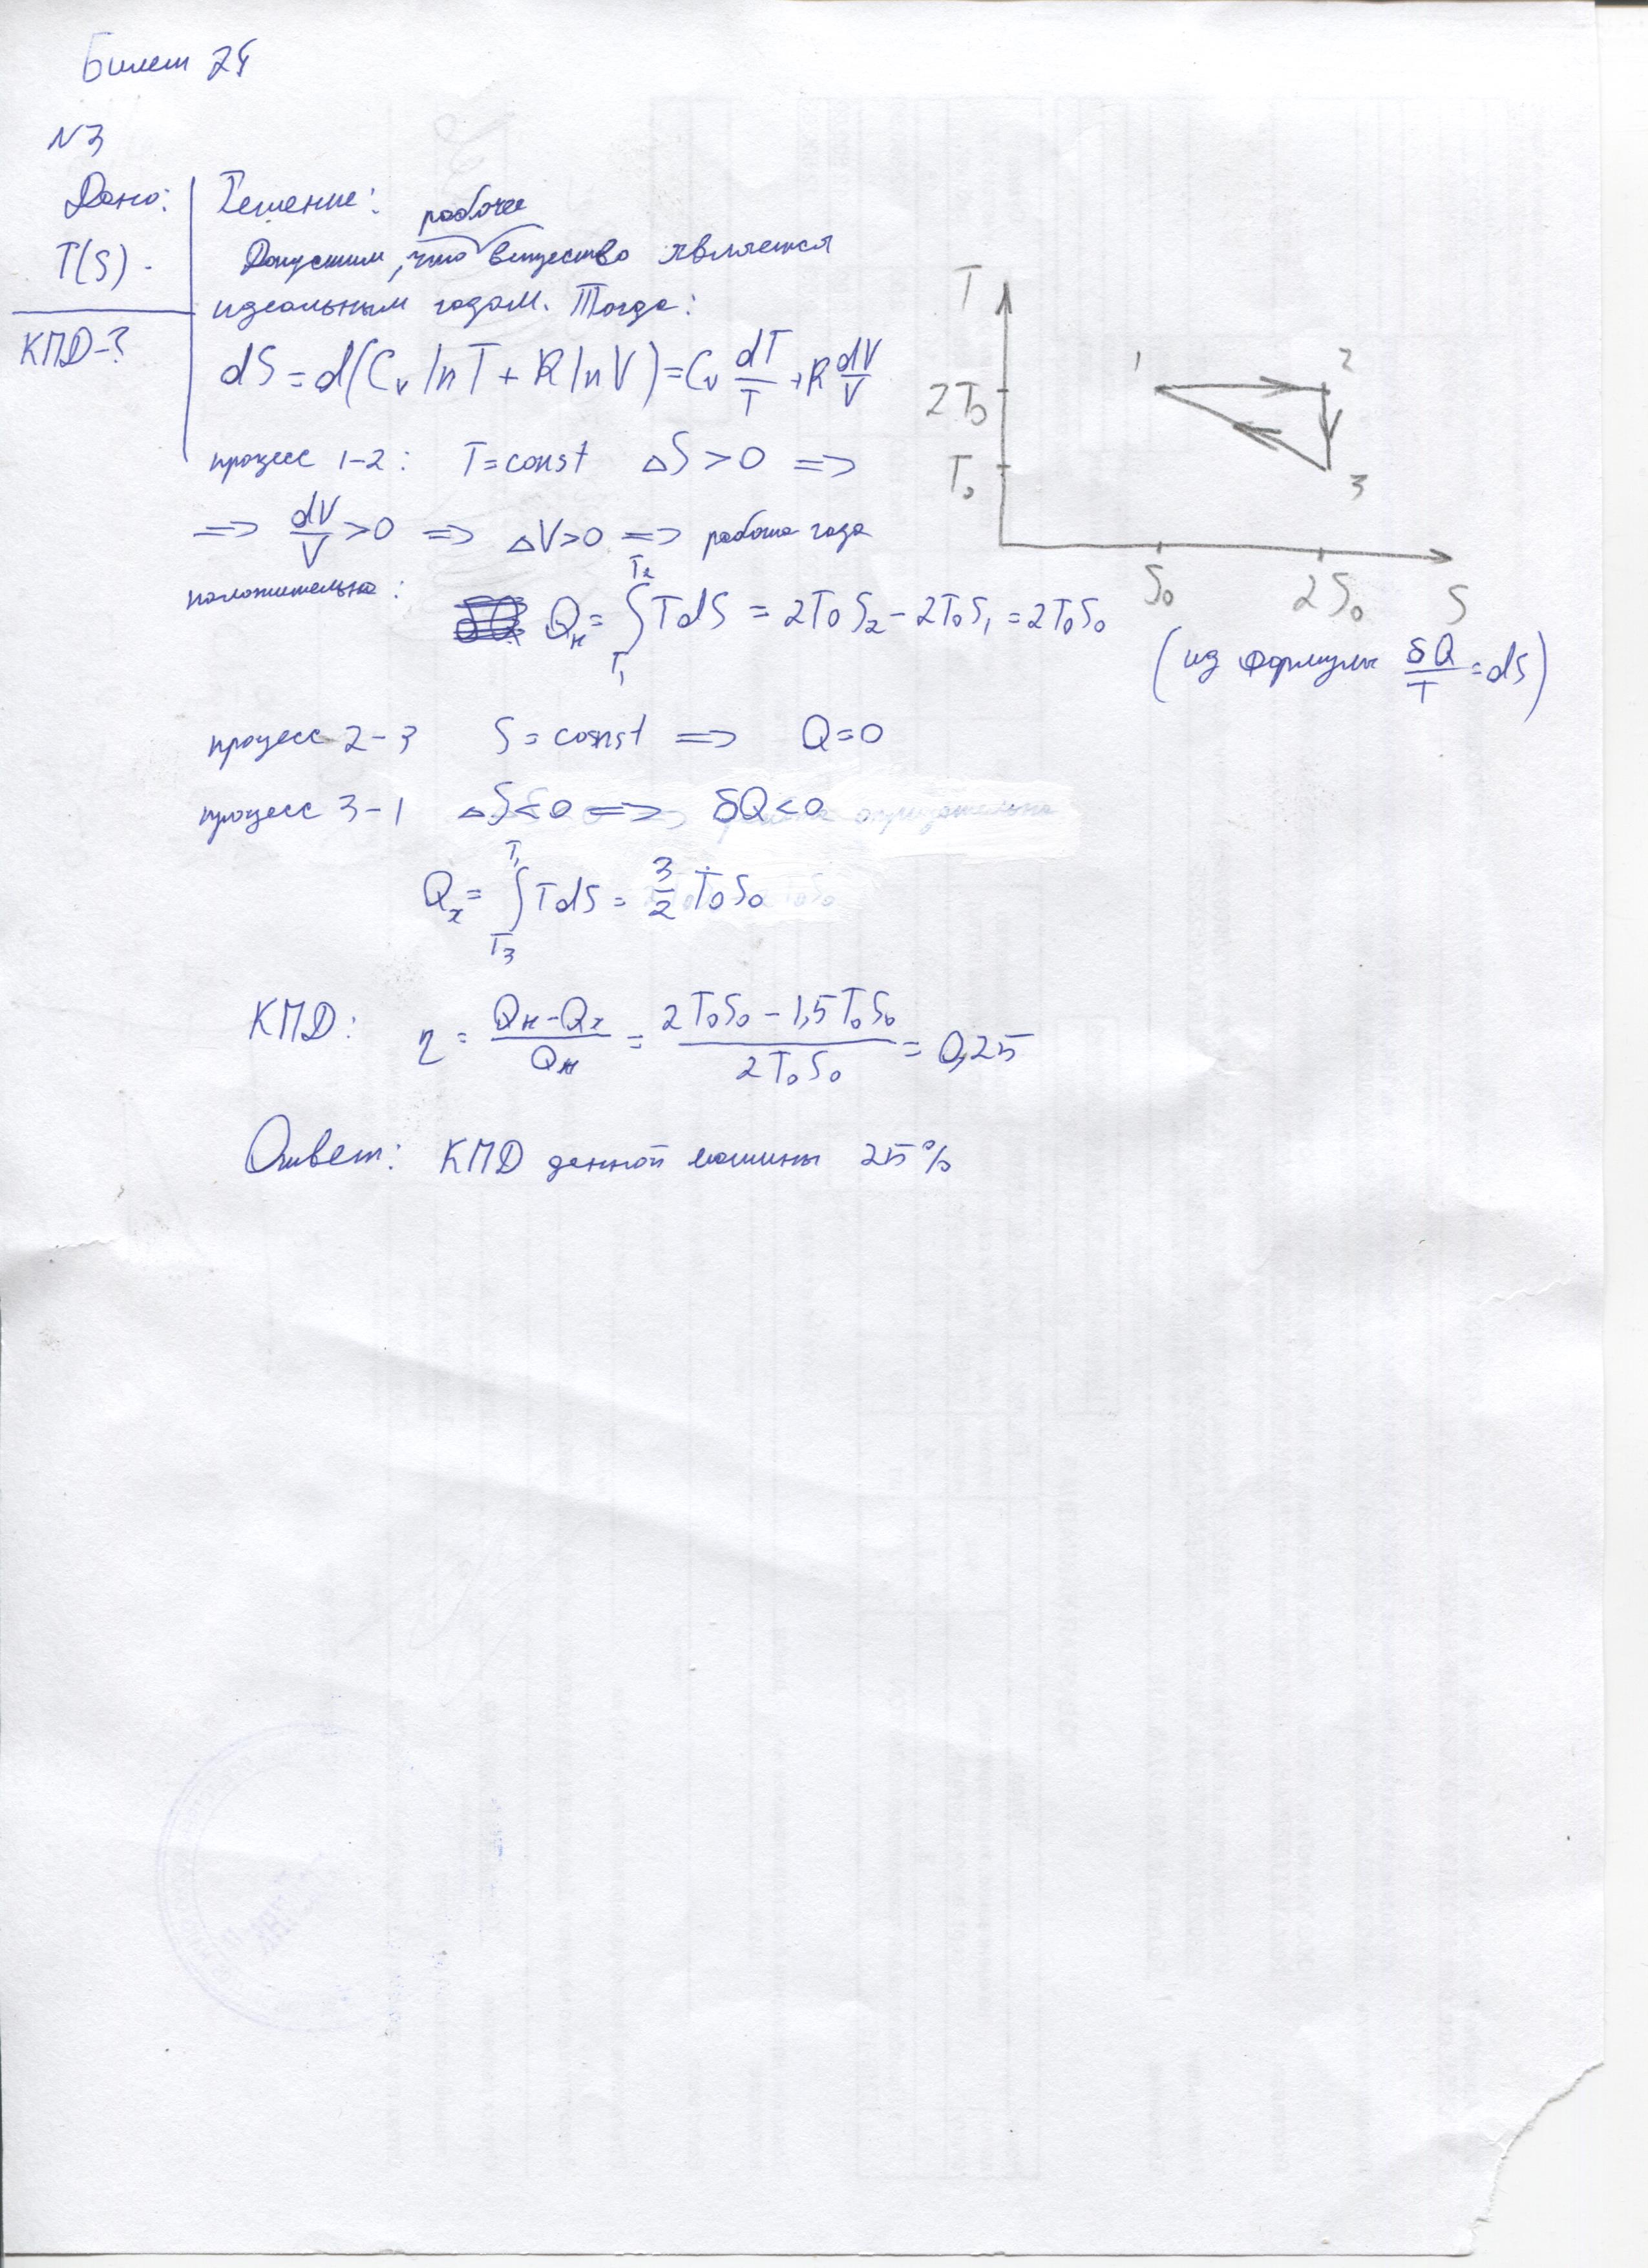 Билет 24
N3
Дано:
T(S).
КПД-?
Решение:
рабочее
Допустим, что вещество является
идеальным газом. Тогда:
dS = d(Cv lnT + R lnV) = Cv dT/T + R dV/V
процесс 1-2: T=const ΔS>0 =>
=> dV/V >0 => ΔV>0 => работа газа
положительна:
Qн = ∫T₁T₂ TdS = 2T₀S₂ - 2T₀S₁ = 2T₀S₀
(из формулы δQ/T = dS)
процесс 2-3 S=const => Q=0
процесс 3-1 ΔS<0 => δQ<0
Qх = ∫T₃T₁ TdS = 3/2 T₀S₀
КПД: η = (Qн-Qх)/Qн = (2T₀S₀ - 1,5T₀S₀)/(2T₀S₀) = 0,25
Ответ: КПД данной машины 25%
T
1 2
2T₀
T₀
3
S₀ 2S₀ S